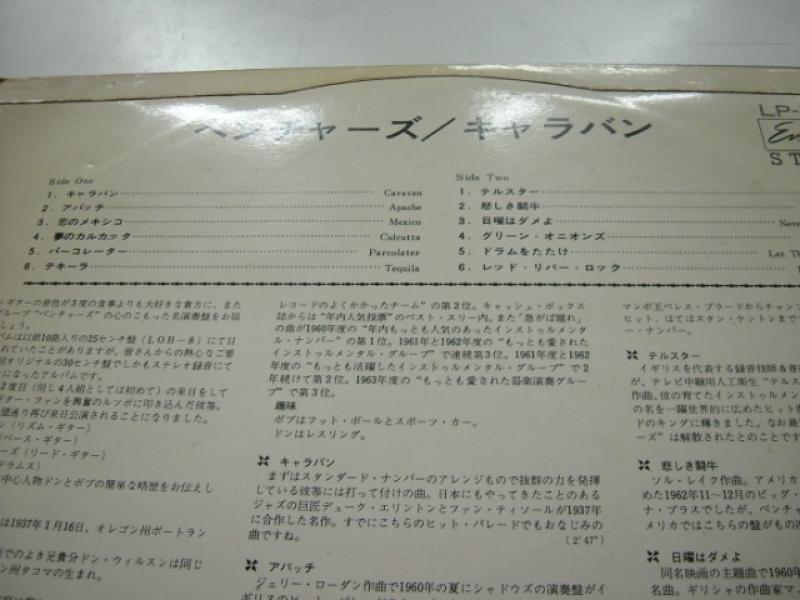 ベンチャーズ/キャラバン
LP-
ST
Side One
1. キャラバン Caravan
2. アパッチ Apache
3. 恋のメキシコ Mexico
4. 夢のカルカッタ Calcutta
5. パーコレーター Parcolater
6. テキーラ Tequila
Side Two
1. テルスター
2. 悲しき闘牛
3. 日曜はダメよ Neve
4. グリーン・オニオンズ
5. ドラムをたたけ Let Th
6. レッド・リバー・ロック
・ギターの音色が3度の食事よりも大好きな貴方に、また
グループ"ベンチャーズ"の心のこもった名演奏盤をお届
しょう。
バムは以前10曲入りの25センチ盤(LOB-8)にて日
れていたことがありますが、皆さんからの熱心なご要
回オリジナルの30センチ盤でしかもステレオ録音にて
になったアルバムです。
2度目(但し4人組としては初めて)の来日をして
ギター・ファンを興奮のルツボに叩き込んだ彼等。
望通り再び来日公演されることになりました。
ン(リズム・ギター)
(ベース・ギター)
ーズ(リード・ギター)
ドラムス)
中心人物ドンとボブの簡単な略歴をお伝えし
は1937年1月16日、オレゴン州ポートラン
でのよき兄貴分ドン・ウィルスンは同じ
ン州タコマの生まれ。
レコードのよくかかったチーム"の第2位。キャッシュ・ボックス
誌からは"年内人気投票"のベスト・スリー内。また"急がば廻れ"
の曲が1960年度の"年内もっとも人気のあったインストゥルメンタ
ル・ナンバー"の第1位。1961年と1962年度の"もっとも愛された
インストゥルメンタル・グループ"で連続第3位。1961年度と1962
年度の"もっとも活躍したインストゥルメンタル・グループ"で2
年続けて第2位。1963年度の"もっとも愛された器楽演奏グルー
プ"で第3位。
趣味
ボブはフット・ボールとスポーツ・カー。
ドンはレスリング。
キャラバン
まずはスタンダード・ナンバーのアレンジもので抜群の力を発揮
している彼等には打って付けの曲。日本にもやってきたことのある
ジャズの巨匠デューク・エリントンとファン・ティソールが1937年
に合作した名作。すでにこちらのヒット・パレードでもおなじみの
曲ですね。 (2′47″)
アパッチ
ジェリー・ローダン作曲で1960年の夏にシャドウズの演奏盤がイ
マンボ王ペレス・プラードからチャンプ
ヒット、はてはスタン・ケントンまで
ー・ナンバー。
テルスター
イギリスを代表する録音技師&音
が、テレビ中継用人工衛星"テルス
作曲。彼の育てたインストゥルメン
の名を一躍世界的に広めたヒット曲
ドのキングに輝きました。なお最
ーズ"は解散されたとのことです
悲しき闘牛
ソル・レイク作曲。アメリカ
めた1962年11~12月のビッグ・
ナ・ブラスでしたが、ベンチャ
メリカではこちらの盤がもの
日曜はダメよ
同名映画の主題曲で1960年
名曲。ギリシャの作曲家マ